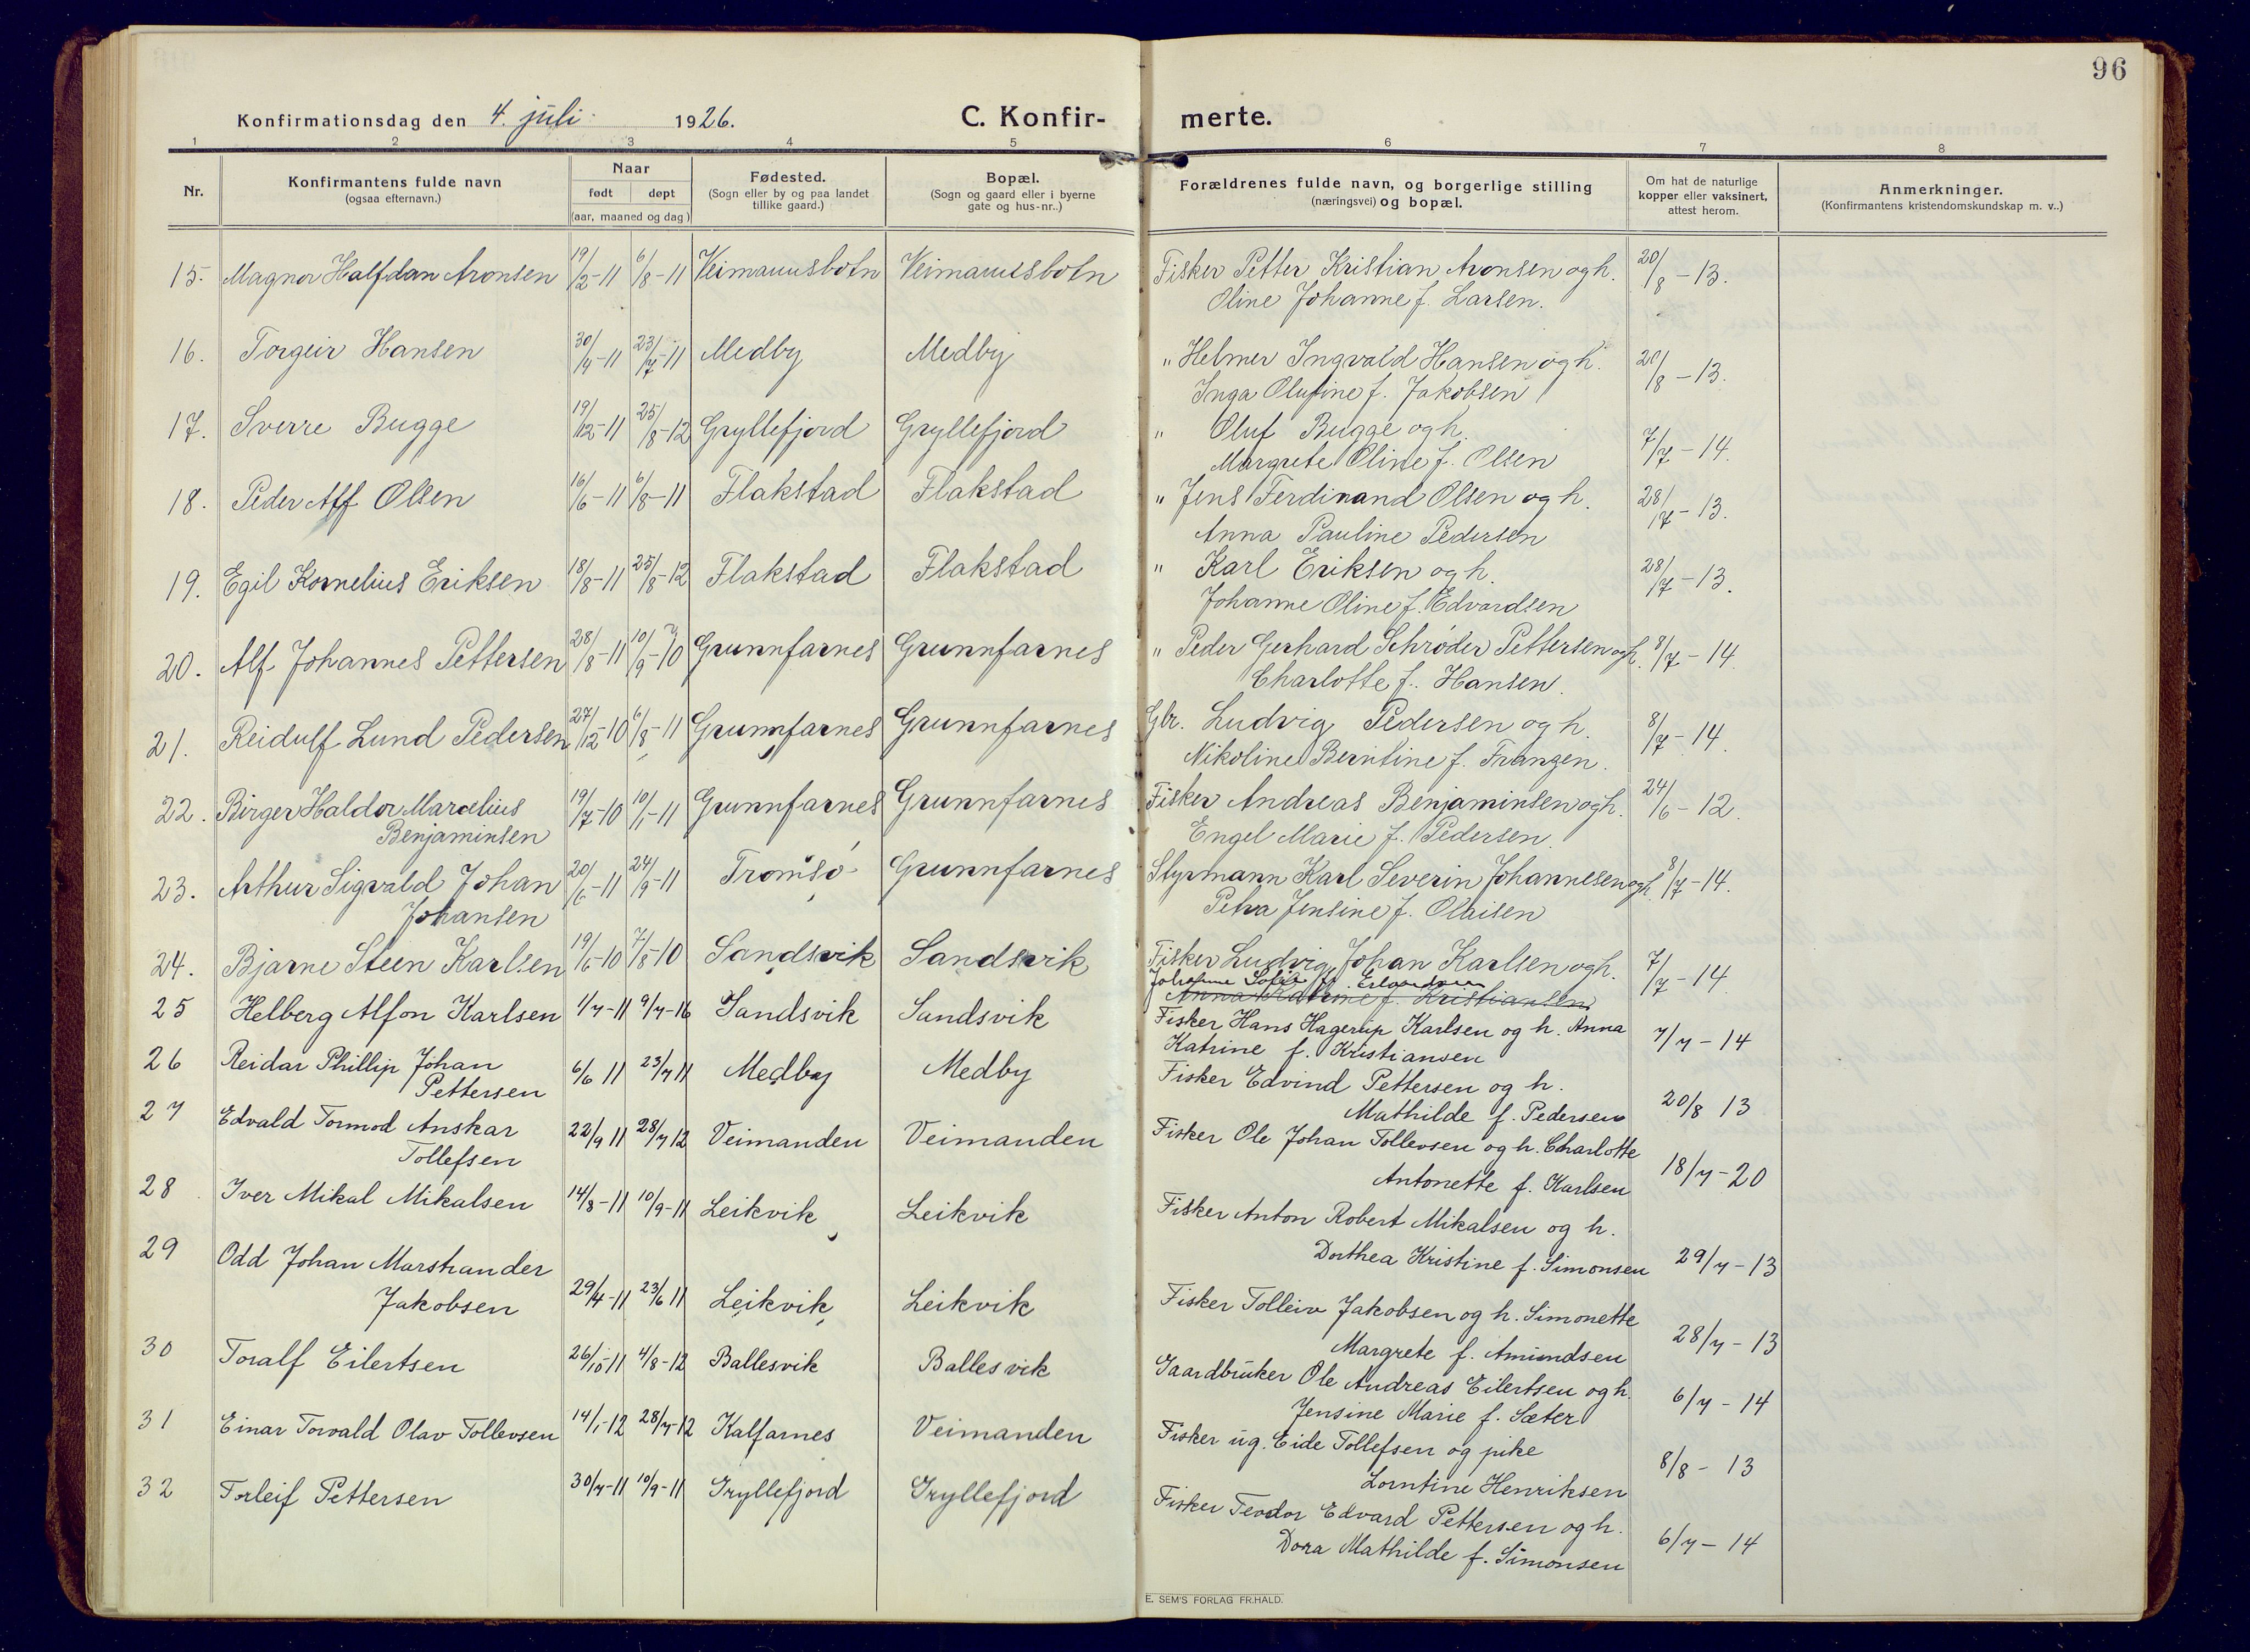 96
Konfirmationsdag den 4. juli 1926. C. Konfir- merte.
1 2 3 4 5 6 7 8
Nr.
Konfirmantens fulde navn
(ogsaa efternavn.)
Naar
født døpt
(aar, maaned og dag)
Fødested.
(Sogn eller by og paa landet
tillike gaard.)
Bopæl.
(Sogn og gaard eller i byerne
gate og hus-nr..)
Forældrenes fulde navn, og borgerlige stilling
(næringsvei) og bopæl.
Om hat de naturlige
kopper eller vaksinert,
attest herom.
Anmerkninger.
(Konfirmantens kristendomskundskap m. v..)
15. Magnor Halfdan Aronsen 19/2-11 6/8-11 Veimannsbotn Veimannsbotn Fisker Petter Kristian Aronsen og h. 20/8-13.
Oline Johanne f. Larsen.
16. Torgeir Hansen 30/4-11 23/7-11 Medby Medby " Helmer Ingvald Hansen og h. 20/8-13.
Inga Olufine f. Jakobsen
17. Sverre Bugge 19/12-11 25/8-12 Gryllefjord Gryllefjord " Oluf Bugge og h. 7/7-14.
Margrete Oline f. Olsen
18. Peder Alf Olsen 16/6-11 6/8-11 Flakstad Flakstad " Jens Ferdinand Olsen og h. 28/7-13.
Anna Pauline Pedersen
19. Egil Kornelius Eriksen 18/8-11 25/8-12 Flakstad Flakstad " Karl Eriksen og h. 28/7-13.
Johanne Oline f. Edvardsen
20. Alf Johannes Pettersen 28/8-11 10/9-10 Grunnfarnes Grunnfarnes " Peder Gerhard Schrøder Pettersen og h. 8/7-14.
Charlotte f. Hansen.
21. Reidulf Lund Pedersen 27/12-10 6/8-11 Grunnfarnes Grunnfarnes Gbr. Ludvig Pedersen og h. 8/7-14.
Nikoline Berntine f. Franzen.
22. Birger Haldor Marcelius 19/7-10 10/1-11 Grunnfarnes Grunnfarnes Fisker Andreas Benjaminsen og h. 24/6-12.
Benjaminsen Engel Marie f. Pedersen.
23. Arthur Sigvald Johan 20/6-11 24/9-11 Tromsø Grunnfarnes Styrmann Karl Severin Johannesen og h. 8/7-14.
Johansen Petra Jensine f. Olaisen
24. Bjarne Steen Karlsen 19/6-10 7/8-10 Sandsvik Sandsvik Fisker Ludvig Johan Karlsen og h. 7/7-14.
Johanne Sofie f. Erlandsen
Anna Katrine f. Kristiansen
25 Helberg Alfon Karlsen 1/7-11 9/7-16 Sandsvik Sandsvik Fisker Hans Hagerup Karlsen og h. Anna 7/7-14
Katrine f. Kristiansen
26 Reidar Phillip Johan Fisker Edvind Pettersen og h.
Pettersen 6/6 11 23/7 11 Medby Medby Mathilde f. Pedersen 20/8 13
27 Edvald Tormod Anskar 22/9 11 28/7 12 Veimanden Veimanden Fisker Ole Johan Tollevsen og h. Charlotte
Tollefsen Antonette f. Karlsen 18/7-20
28 Iver Mikal Mikalsen 14/8-11 10/9-11 Leikvik Leikvik Fisker Anton Robert Mikalsen og h.
Dorthea Kristine f. Simonsen 29/7-13
29 Odd Johan Marstrander Fisker Tolleiv Jakobsen og h. Simonette
Jakobsen 29/4-11 23/6 11 Leikvik Leikvik Margrete f. Amundsen 28/7-13
30 Toralf Eilertsen 26/10-11 4/8-12 Ballesvik Ballesvik Gaardbruker Ole Andreas Eilertsen og h.
Jensine Marie f. Sæter 6/7-14
31 Einar Torvald Olav Tollevsen 14/1-12 28/7-12 Kalfarnes Veimanden Fisker ug. Eide Tollefsen og pike
Lorntine Henriksen 8/8-13
32 Torleif Pettersen 30/7-11 10/9-11 Gryllefjord Gryllefjord Fisker Teodor Edvard Pettersen og h.
Dora Mathilde f. Simonsen 6/7-14
E. SEM'S FORLAG FR.HALD.